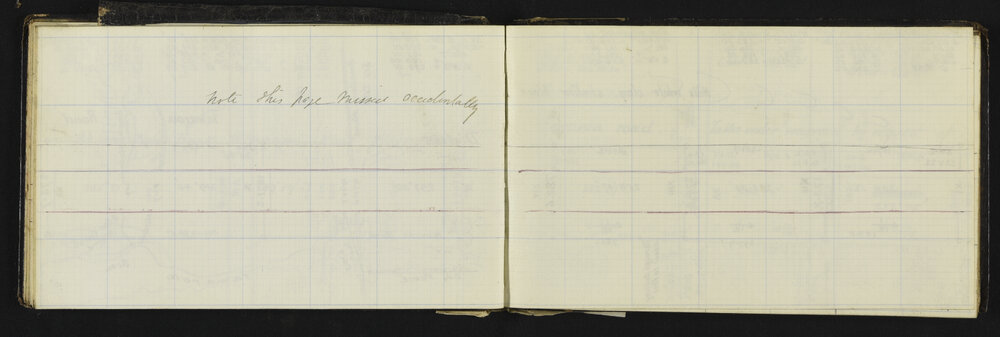 Note this page missed accidentally